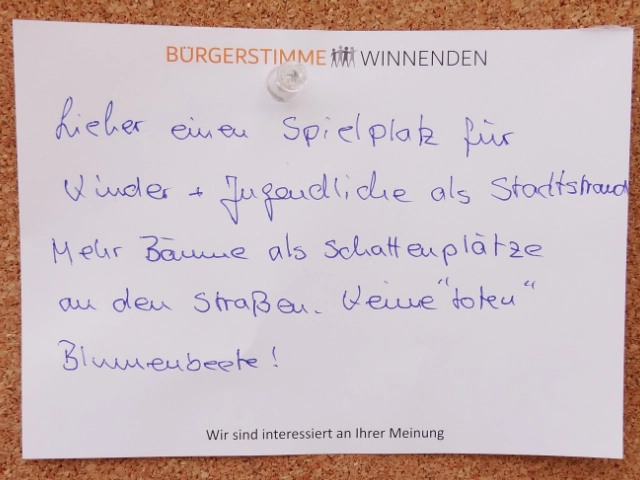 BÜRGERSTIMME WINNENDEN
Lieber einen Spielplatz für
Kinder + Jugendliche als Stadtstrand
Mehr Bäume als Schattenplätze
an den Straßen. Keine "toten"
Blumenbeete!
Wir sind interessiert an Ihrer Meinung